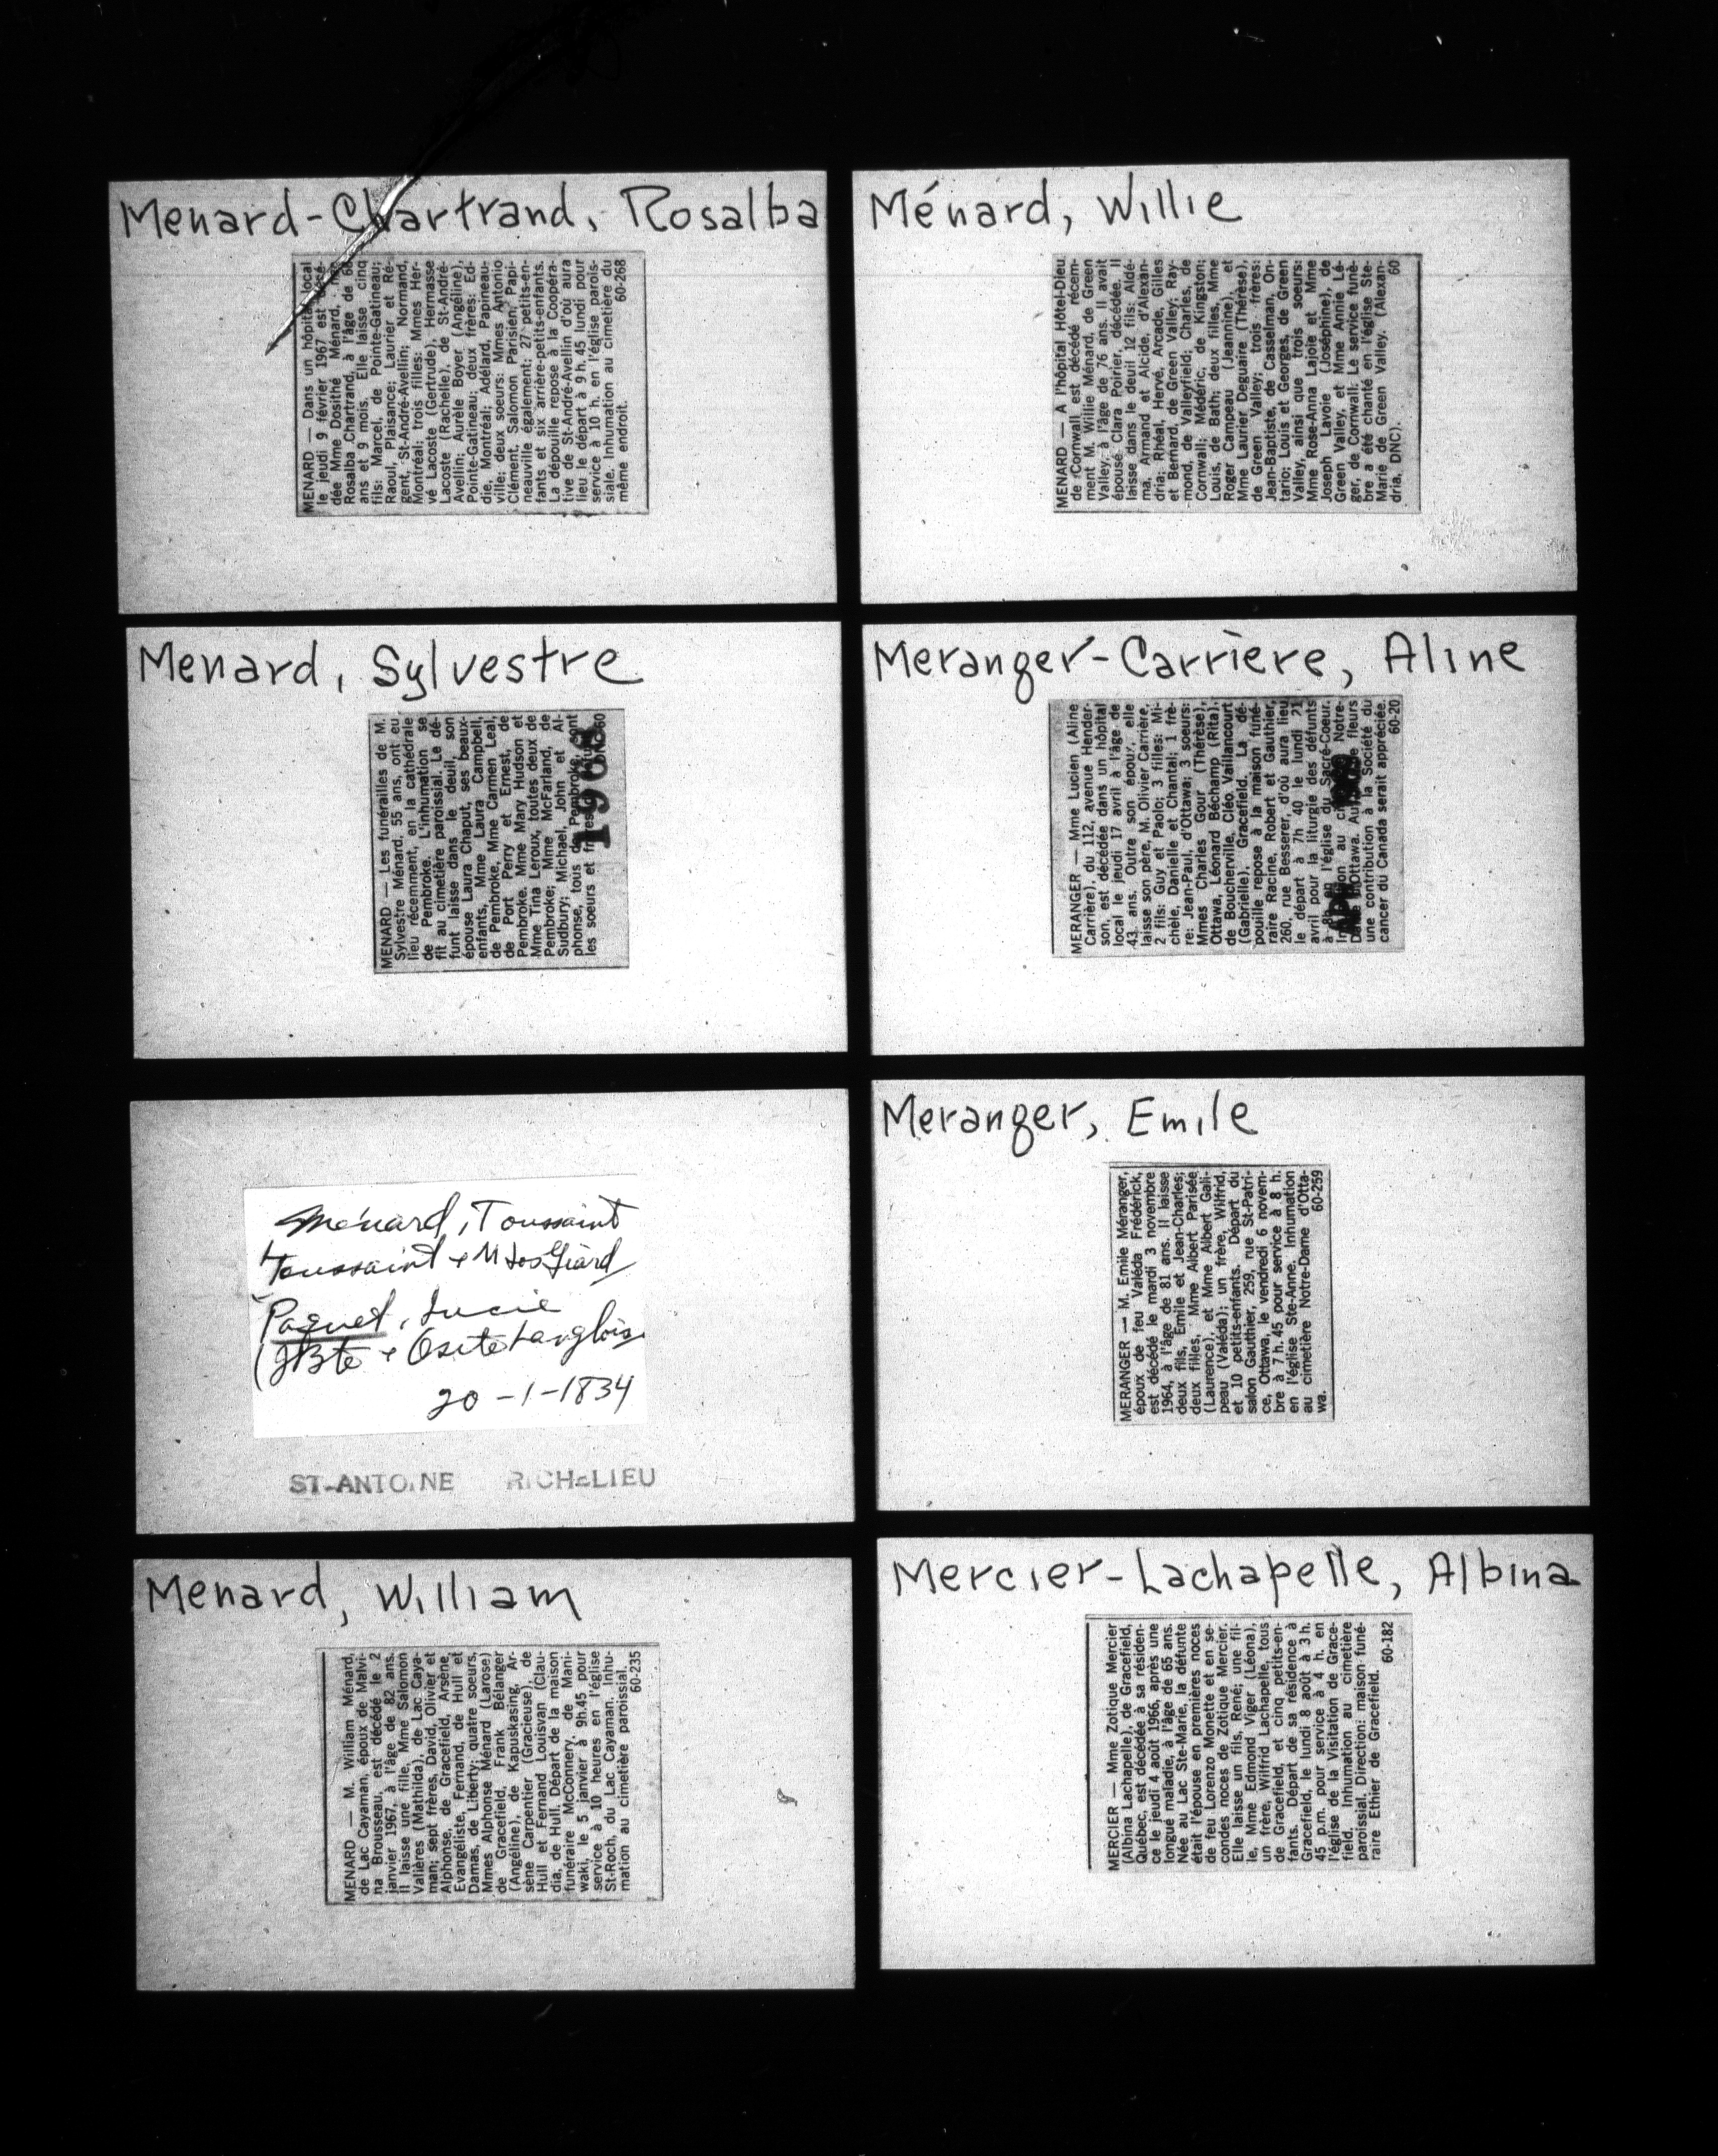 Menard-Chartrand, Rosalba
MENARD — Dans un hôpital local
le jeudi 9 février 1967 est décé-
dée Mme Dosithé Ménard, née
Rosalba Chartrand, à l'âge de 68
ans et 9 mois. Elle laisse cinq
fils: Marcel, de Pointe-Gatineau;
Raoul, Plaisance; Laurier et Ré-
gent, St-André-Avellin; Normand,
Montréal; trois filles: Mmes Her-
vé Lacoste (Gertrude), Hermasse
Lacoste (Rachelle), de St-André-
Avellin; Aurèle Boyer (Angéline),
Pointe-Gatineau; deux frères: Ed-
die, Montréal; Adélard, Papineau-
ville; deux soeurs: Mmes Antonio
Clément, Salomon Parisien, Papi-
neauville également; 27 petits-en-
fants et six arrière-petits-enfants.
La dépouille repose à la Coopéra-
tive de St-André-Avellin d'où aura
lieu le départ à 9 h. 45 lundi pour
service à 10 h. en l'église parois-
siale. Inhumation au cimetière du
même endroit.
60-268
Ménard, Willie
MENARD — A l'hôpital Hôtel-Dieu
de Cornwall est décédé récem-
ment M. Willie Ménard, de Green
Valley, à l'âge de 76 ans. Il avait
épousé Clara Poirier, décédée. Il
laisse dans le deuil 12 fils: Aldé-
ma, Armand et Alcide, d'Alexan-
dria; Rhéal, Hervé, Arcade, Gilles
et Bernard, de Green Valley; Ray-
mond, de Valleyfield; Charles, de
Cornwall; Médéric, de Kingston;
Louis, de Bath; deux filles, Mme
Roger Campeau (Jeannine), et
Mme Laurier Deguaire (Thérèse),
de Green Valley; trois frères:
Jean-Baptiste, de Casselman, On-
tario; Louis et Georges, de Green
Valley, ainsi que trois soeurs:
Mme Rose-Anna Lajoie et Mme
Joseph Lavoie (Joséphine), de
Green Valley, et Mme Annie Lé-
ger, de Cornwall. Le service funè-
bre a été chanté en l'église Ste-
Marie de Green Valley. (Alexan-
dria, DNC).
60
Menard, Sylvestre
MENARD — Les funérailles de M.
Sylvestre Ménard, 55 ans, ont eu
lieu récemment, en la cathédrale
de Pembroke. L'inhumation se
fit au cimetière paroissial. Le dé-
funt laisse dans le deuil, son
épouse Laura Chaput, ses beaux-
enfants, Mme Laura Campbell,
de Pembroke, Mme Carmen Leal,
de Port Perry et Ernest, de
Pembroke. Mme Mary Hudson et
Mme Tina Leroux, toutes deux de
Pembroke; Mme McFarland, de
Sudbury; Michael, John et Al-
phonse, tous de Pembroke, sont
les soeurs et
60
Meranger-Carrière, Aline
MERANGER — Mme Lucien (Aline
Carrière), du 112, avenue Hender-
son, est décédée dans un hôpital
local le jeudi 17 avril à l'âge de
43 ans. Outre son époux, elle
laisse son père, M. Olivier Carrière,
2 fils: Guy et Paolo; 3 filles: Mi-
chèle, Danielle et Chantal; 1 frè-
re: Jean-Paul, d'Ottawa; 3 soeurs:
Mmes Charles Gour (Thérèse),
Ottawa, Léonard Béchamp (Rita),
de Boucherville, Cléo Vaillancourt
(Gabrielle), Gracefield. La dé-
pouille repose à la maison funé-
raire Racine, Robert et Gauthier,
260, rue Besserer, d'où aura lieu
le départ à 7h 40 le lundi 21
avril pour la liturgie des défunts
à 8h en l'église du Sacré-Coeur.
au Notre-
d'Ottawa. fleurs
une contribution à la Société du
cancer du Canada serait appréciée.
60-20
Ménard, Toussaint
Toussaint &
Paquet, Lucie
(JBte & Osite Langlois
20-1-1834
ST-ANTOINE RICHELIEU
Meranger, Emile
MERANGER — M. Emile Méranger,
époux de feu Valéda Frédérick,
est décédé le mardi 3 novembre
1964, à l'âge de 81 ans. Il laisse
deux fils, Emile et Jean-Charles;
deux filles, Mme Albert Parisée
(Laurence), et Mme Albert Gali-
peau (Valéda); un frère, Wilfrid,
et 10 petits-enfants. Départ du
salon Gauthier, 259, rue St-Patri-
ce, Ottawa, le vendredi 6 novem-
bre à 7 h. 45 pour service à 8 h.
en l'église Ste-Anne. Inhumation
au cimetière Notre-Dame d'Otta-
wa.
60-259
Menard, William
MENARD — M. William Ménard,
de Lac Cayaman, époux de Malvi-
na Brousseau, est décédé le 2
janvier 1967, à l'âge de 82 ans.
Il laisse une fille, Mme Salomon
Vallières (Mathilda), de Lac Caya-
man; sept frères, David, Olivier et
Alphonse, de Gracefield, Arsène,
Evangéliste, Fernand, de Hull et
Damas, de Liberty; quatre soeurs,
Mmes Alphonse Ménard (Larose)
de Gracefield, Frank Bélanger
(Angéline), de Kapuskasing, Ar-
sène Carpentier (Gracieuse), de
Hull et Fernand Louisvan (Clau-
dia, de Hull. Départ de la maison
funéraire McConnery, de Mani-
waki, le 5 janvier à 9h.45 pour
service à 10 heures en l'église
St-Roch, du Lac Cayaman. Inhu-
mation au cimetière paroissial.
60-235
Mercier-Lachapelle, Albina
MERCIER — Mme Zotique Mercier
(Albina Lachapelle), de Gracefield,
Québec, est décédée à sa résiden-
ce le jeudi 4 août 1966, après une
longue maladie, à l'âge de 65 ans.
Née au Lac Ste-Marie, la défunte
était l'épouse en premières noces
de feu Lorenzo Monette et en se-
condes noces de Zotique Mercier.
Elle laisse un fils, René; une fil-
le, Mme Edmond Viger (Léona),
un frère, Wilfrid Lachapelle, tous
de Gracefield, et cinq petits-en-
fants. Départ de sa résidence à
Gracefield, le lundi 8 août à 3 h.
45 p.m. pour service à 4 h. en
l'église de la Visitation de Grace-
field. Inhumation au cimetière
paroissial. Direction: maison funé-
raire Ethier de Gracefield.
60-182